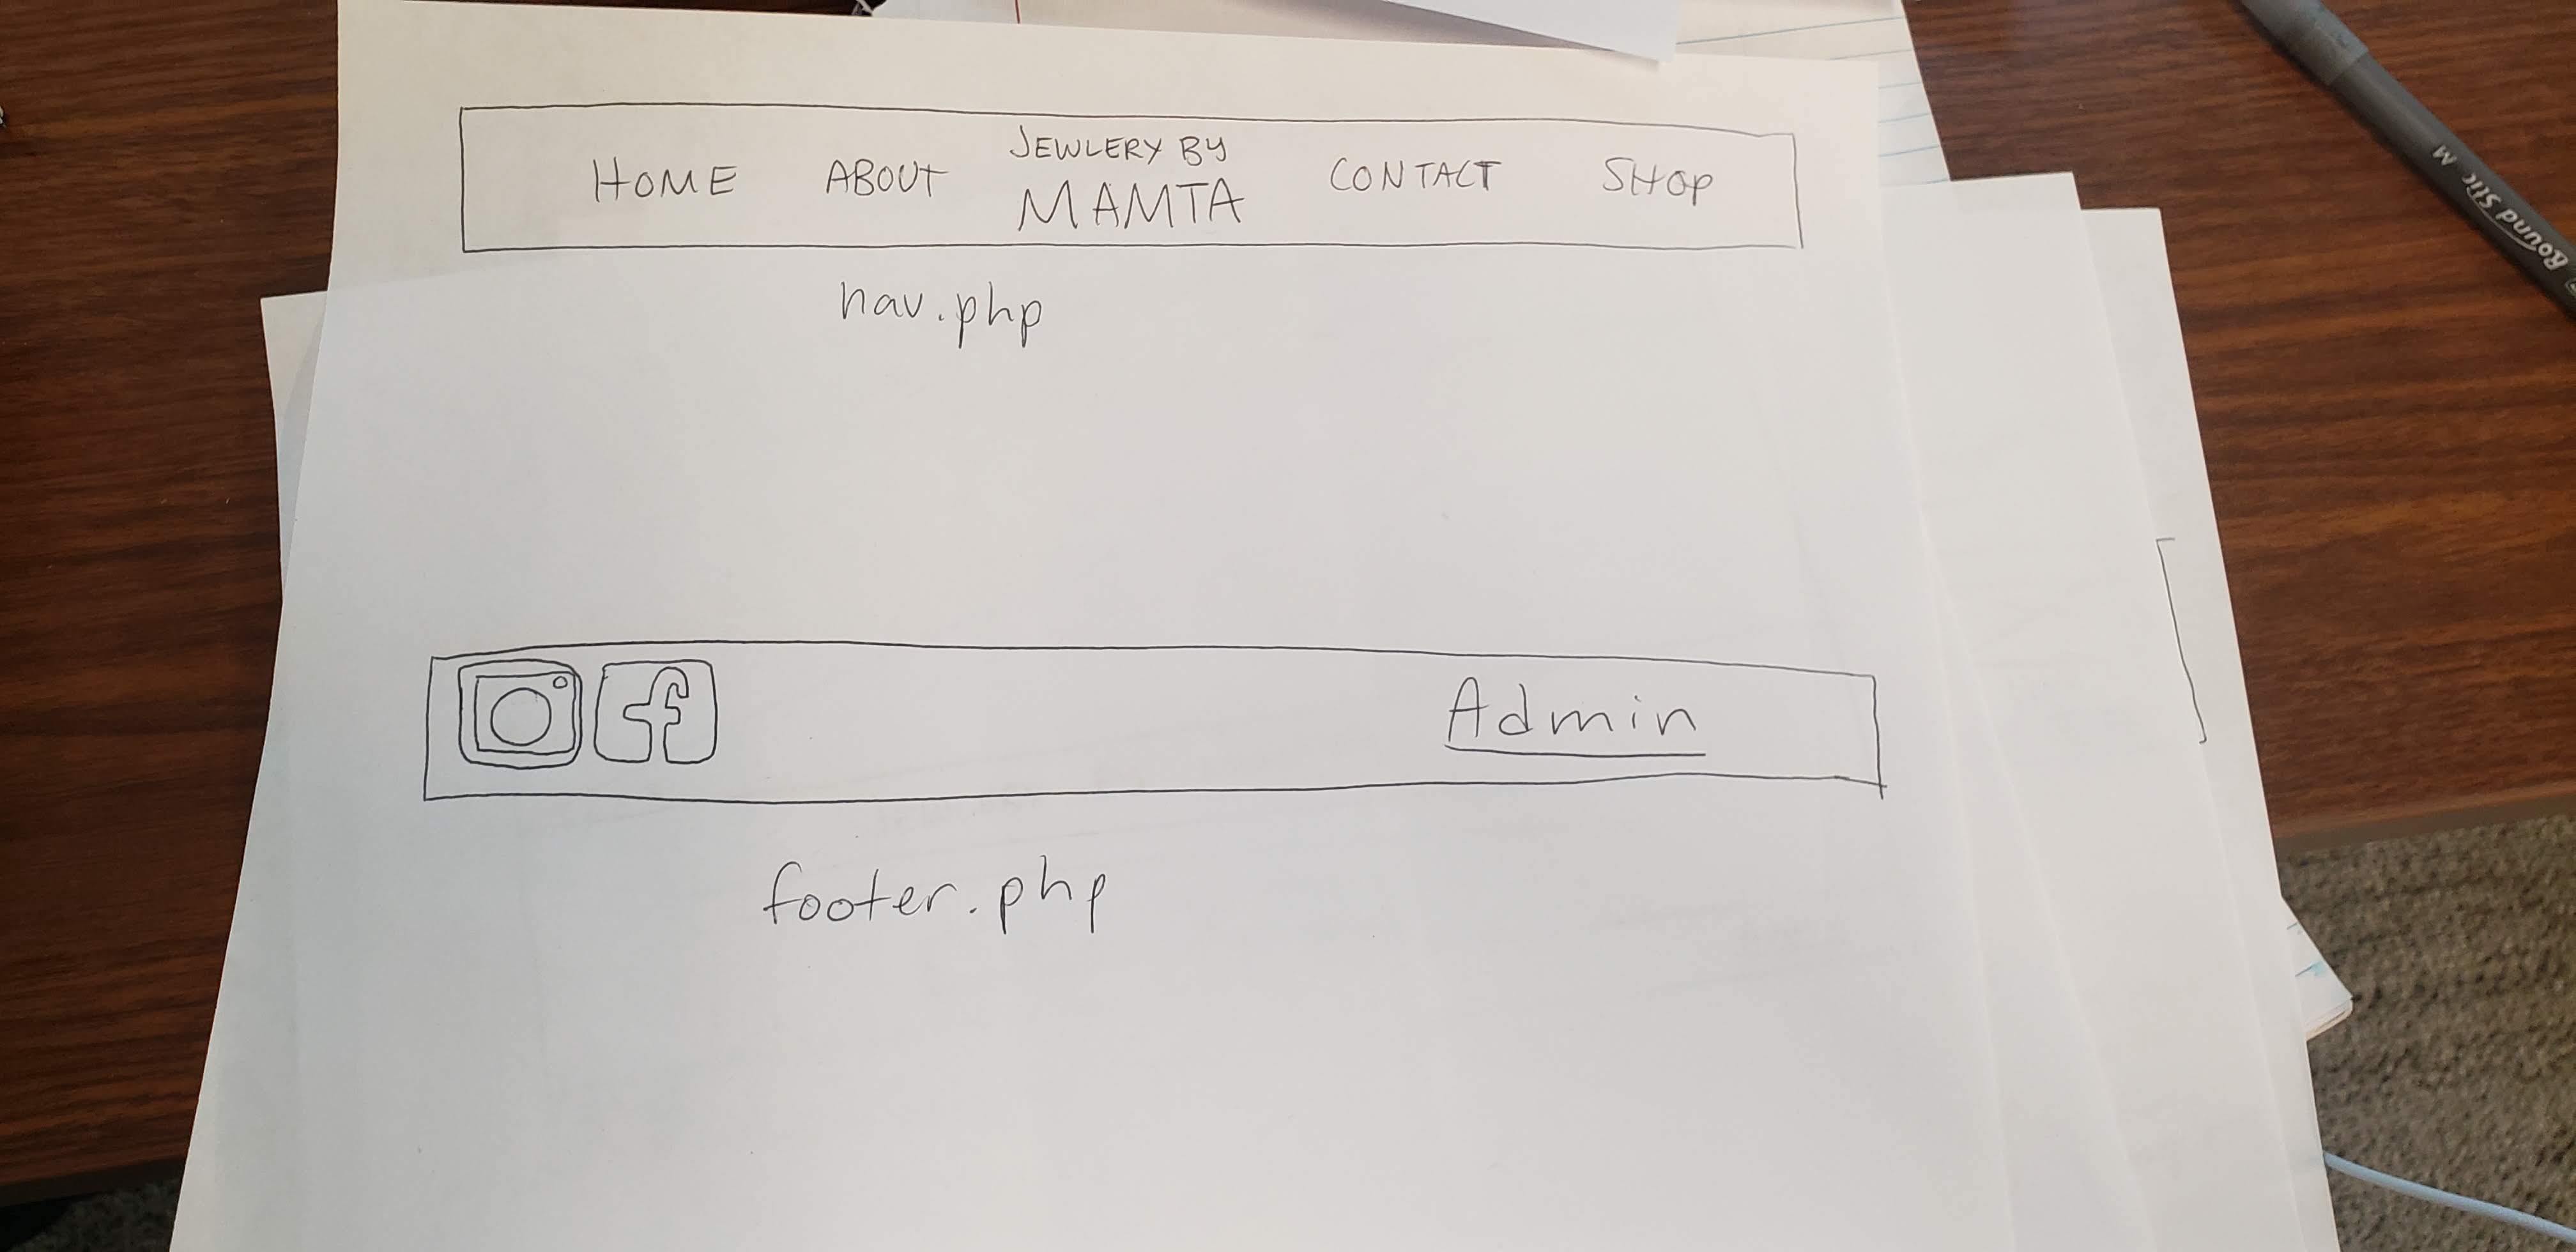 HOME ABOUT JEWLERY BY MAMTA CONTACT SHOP
nav.php
f Admin
footer.php
Round Stic M